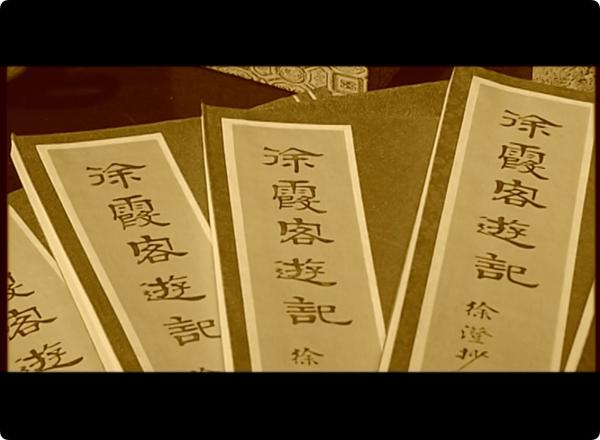 霞客遊
徐霞客遊記
徐霞客遊記
徐
徐霞客遊記
徐澄抄